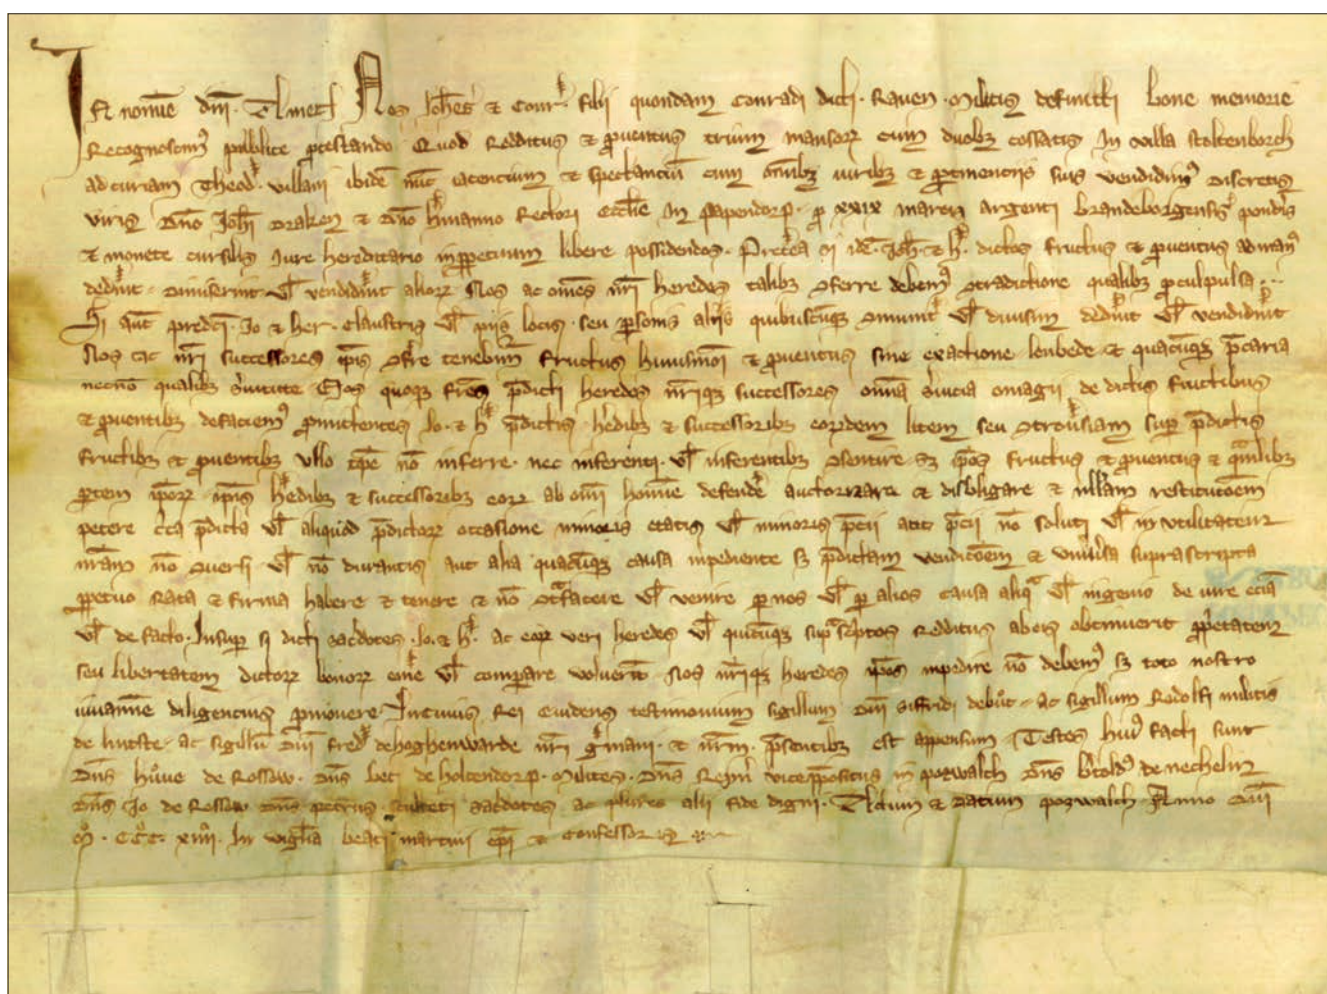 In nomine dni. Amen Nos Johes et Conr. filii quondam Conradi dicti Raven militis defuncti bone memorie
Recognoscim publice protestando Quod redditus et proventus trium mansorz cum duobz cossatis In villa stoltenborch
ad curiam Theod. villani ibide nuc iacencium et spectanciu cum omibz iuribz et ptinentiis suis vendidim discretis
viris dno Johi Draken et dno hmanno Rectori ecclie in papendorp. p xxix marcis argenti brandeborgensis pondis
et monete iure hereditario in ppetuum libere possidendos. Pretea si ide. Joh. et h. dictos fructus et pventus
dedint vl vendidint Nos ac omes nri heredes talibz oferre debem otradictione qualibz pculpulsa
Si aut predcti. Jo et her. claustris vl piis locis. seu psonis aliis quibuscuqz vl divisim dedint vl vendidint
Nos ac nri successores ipis ofre tenebim fructus huiusmoi et pventus sine exactione lenbede et quacuqz pcaria
necno qualibz svitute Nos quoqz fres pdicti heredes nriqz successores omia svicia omagii de dictis fructibus
et pventibz defaciem pmittentes Jo. et h pdictis hedibz et successoribz eorudem litem seu otrovsiam sup pdictis
fructibz et pventibz ullo tpe no inferre. nec inferenti. vl inferentibz osentire sz ipos fructus et pventus et qmlibz
ptem ipor ipis hedibz et successoribz eorz ab omi homie defende auctorizare et disbligare et nllam restitutoem
petere cca pdicta vl aliquid pdictorz occasione minoris etatis vl minoris pcii aut pcii no soluti vl in utilitatem
nram no oversi vl no durantis aut alia quacuqz causa inpediente sz pdictam vendicoem et univsa suprascripta
ppetuo rata et firma habere et tenere et no otfacere vl venire p nos vl p alios causa aliq vl ingenio de iure ecia
vl de facto. Insup si dicti sacdotes. Jo. et h. ac eorz veri heredes vl quicuqz supscptos redditus ab eis obtinuerit pprietatem
seu libertatem dictorz bonorz eme vl comparare voluerit Nos nriqz heredes ipos inpedire no debem sz toto nostro
iuvamie diligencius pmovere. In cuius rei evidens testimonium sigillum dni siffridi ac sigillum Redolfi militis
ac sigillu dni fred de hoghenwarde nri gmani. et nrm. psentibz est appensum Testes hui facti sunt
Dns de Rossow. dns bet de holtendorp. milites. Dns Reyn vicepositus in poswalch dns btold de nechelin
Dns Jo de Rossow dns petrus sacdotes ac plures alii fide digni. Actum et datum poswalch Anno dni
M. CCC. xiiii. In vigilia beati martini epi et confessoris